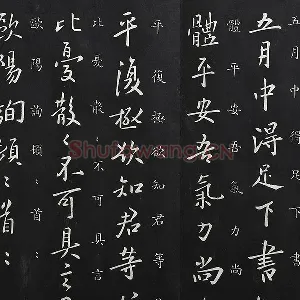 五月中得足下書
五月中得足下書
體平安吾氣力尚
體平安吾氣力尚
平復極欲知君等
平復極欲知君等
比憂散〻不可具言
比憂散〻不可具言
歐陽詢頓〻首〻
歐陽詢頓〻首〻
Shufawang.CN